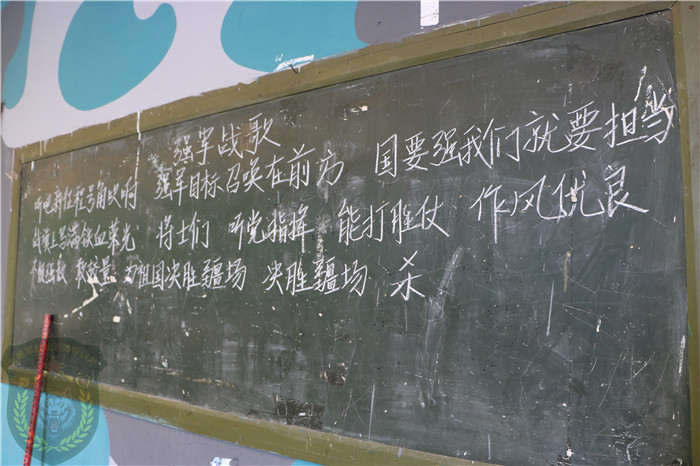 强军战歌
听吧新征程号角吹响 强军目标召唤在前方 国要强我们就要担当
战旗上写满铁血荣光 将士们 听党指挥 能打胜仗 作风优良
不惧强敌 敢较量 为祖国决胜疆场 决胜疆场 杀